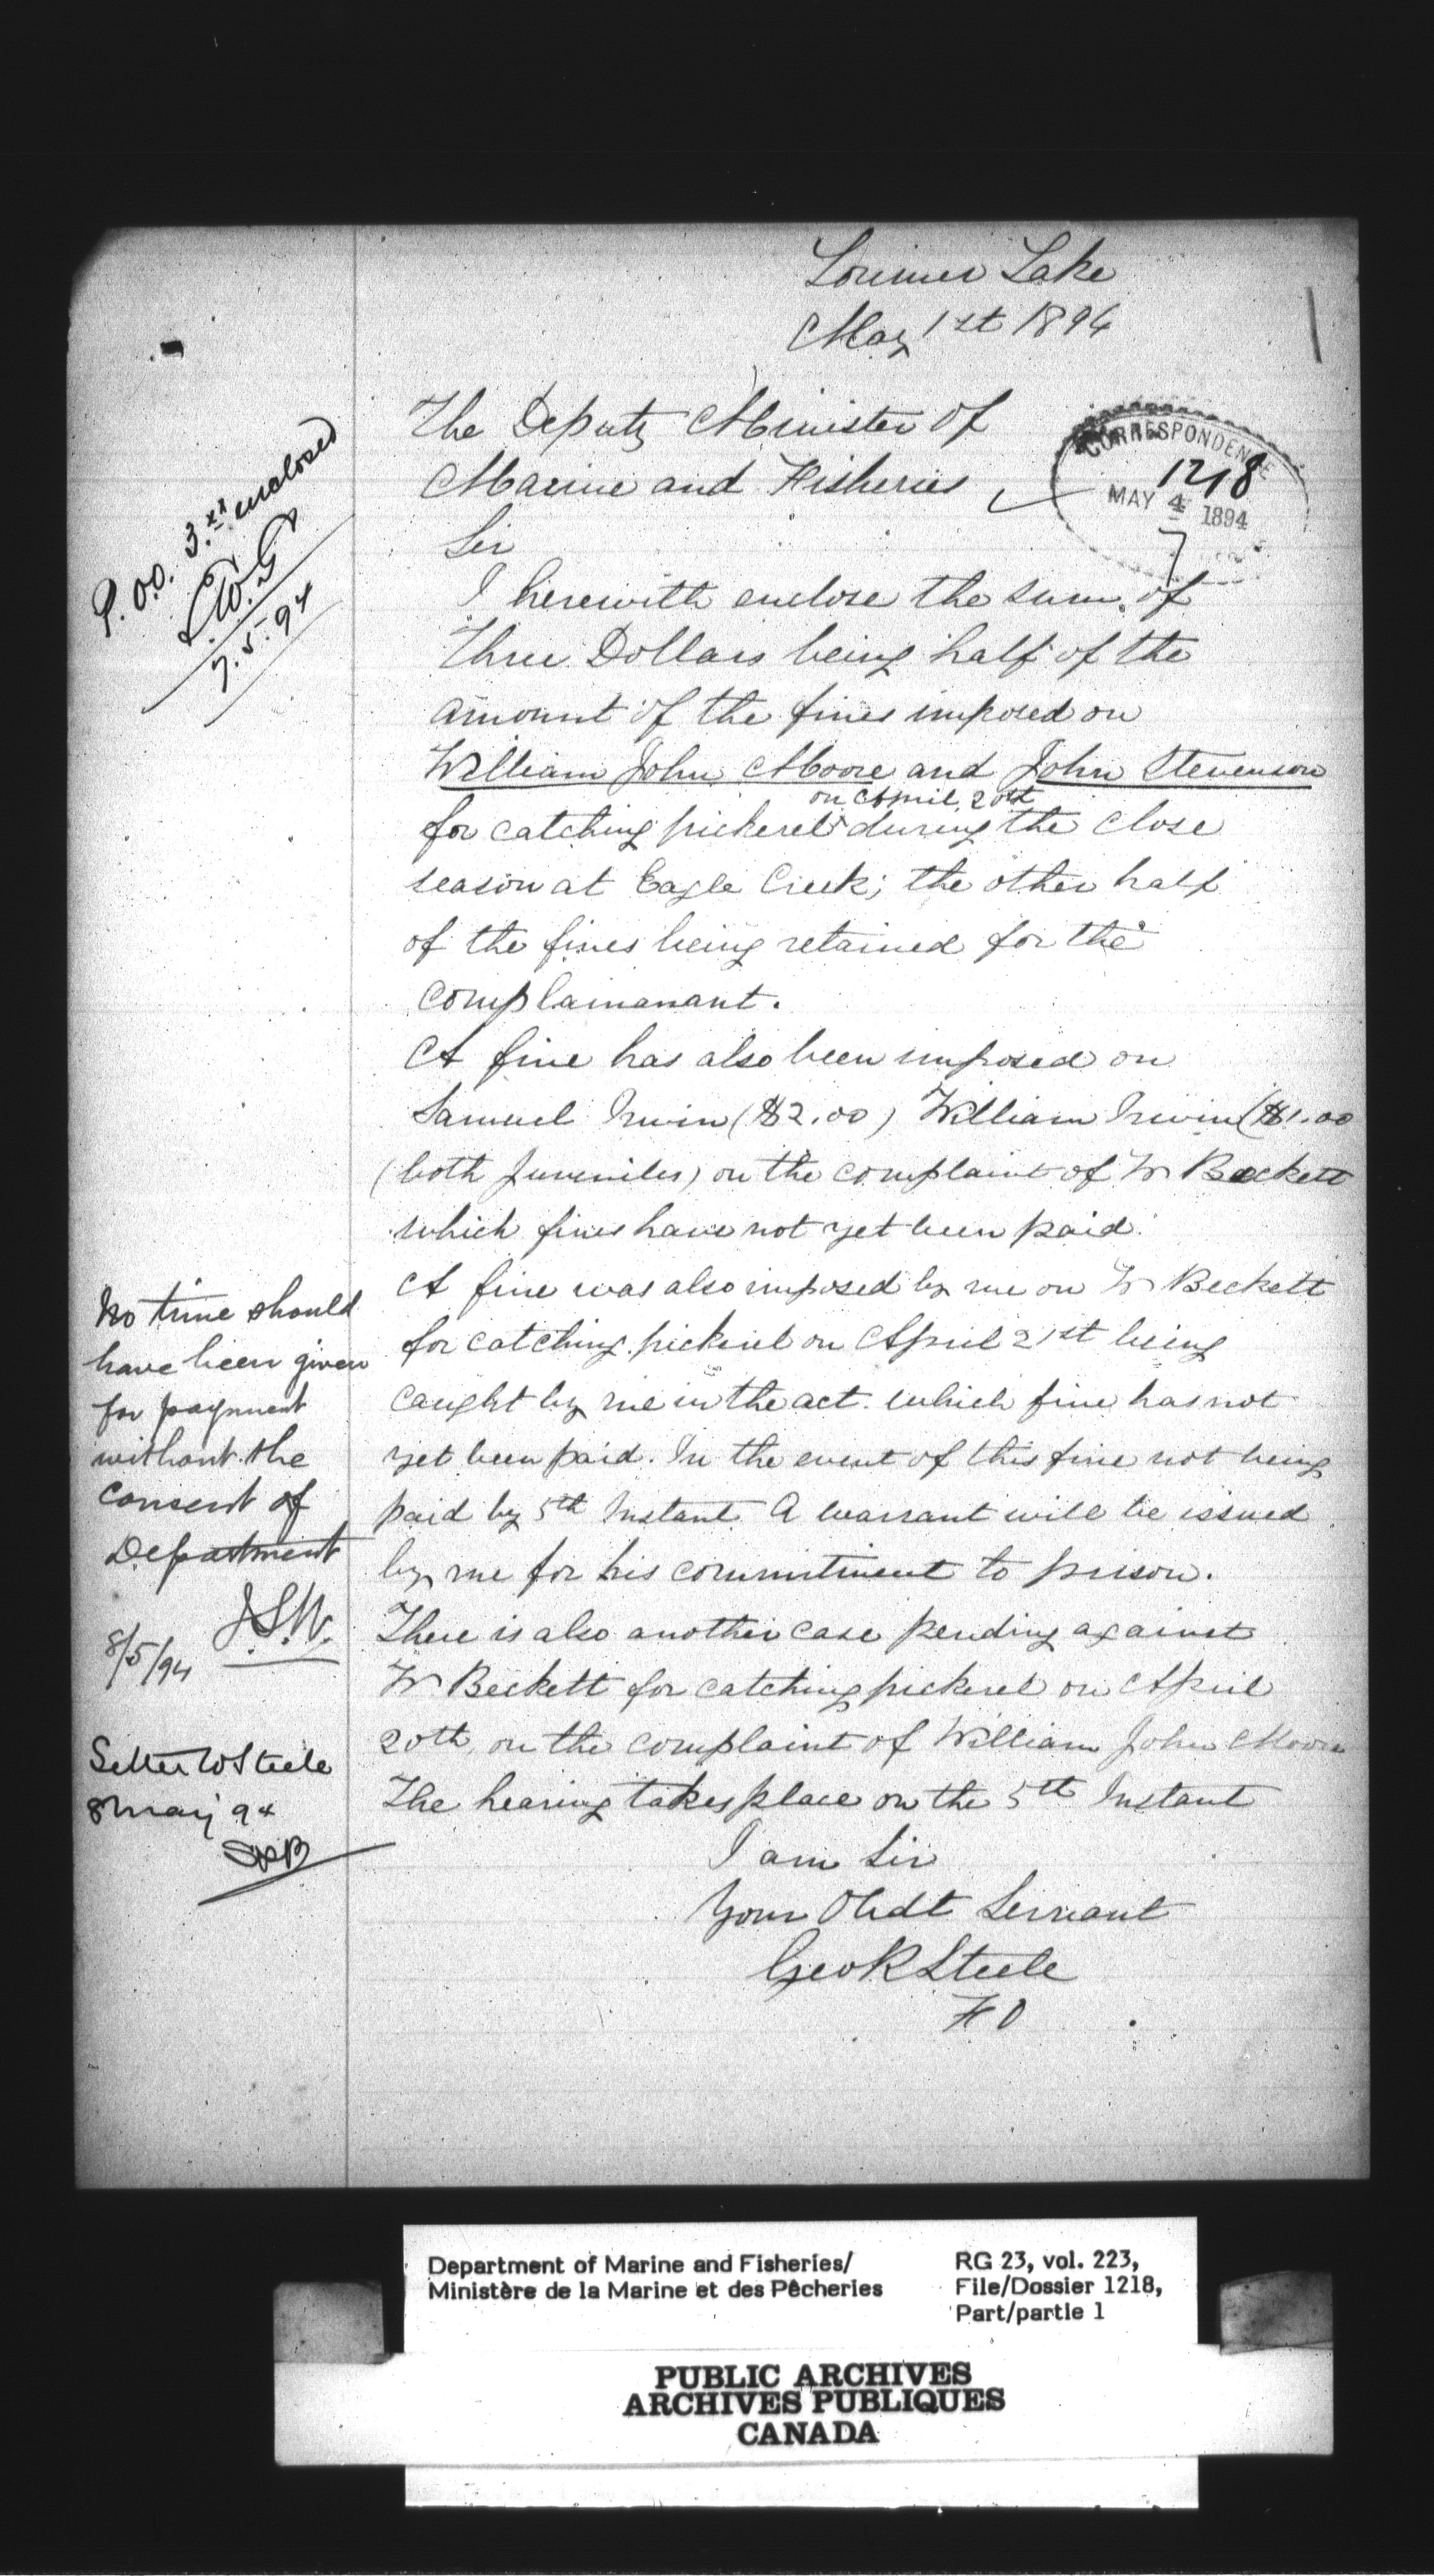 Lorimer Lake
May 1st 1894
The Deputy Minister of
Marine and Fisheries
CORRESPONDENCE
1218
MAY 4 1894
7
Sir
P.O.O. 3.xx enclosed
7.5.94
I herewith enclose the sum of
Three Dollars being half of the
amount of the fines imposed on
William John Moore and John Stevenson
on April 20th
for catching pickerel during the close
season at Eagle Creek; the other half
of the fines being retained for the
complainanant.
A fine has also been imposed on
Samuel Irwin ($2.00) William Irwin ($1.00
(both Juveniles) on the complaint of W Beckett
which fines have not yet been paid.
A fine was also imposed by me on W Beckett
for catching pickerel on April 21st being
caught by me in the act. which fine has not
yet been paid. In the event of this fine not being
paid by 5th Instant A warrant will be issued
by me for his commitment to prison.
There is also another case pending against
W Beckett for catching pickerel on April
20th, on the complaint of William John Moore
The hearing takes place on the 5th Instant
I am Sir
Your Obdt Servant
Geo R Steele
F O
No time should
have been given
for payment
without the
consent of
Department
J.S.W.
8/5/94
Letter to Steele
8 May 94
Department of Marine and Fisheries/
Ministère de la Marine et des Pêcheries
RG 23, vol. 223,
File/Dossier 1218,
Part/partie 1
PUBLIC ARCHIVES
ARCHIVES PUBLIQUES
CANADA